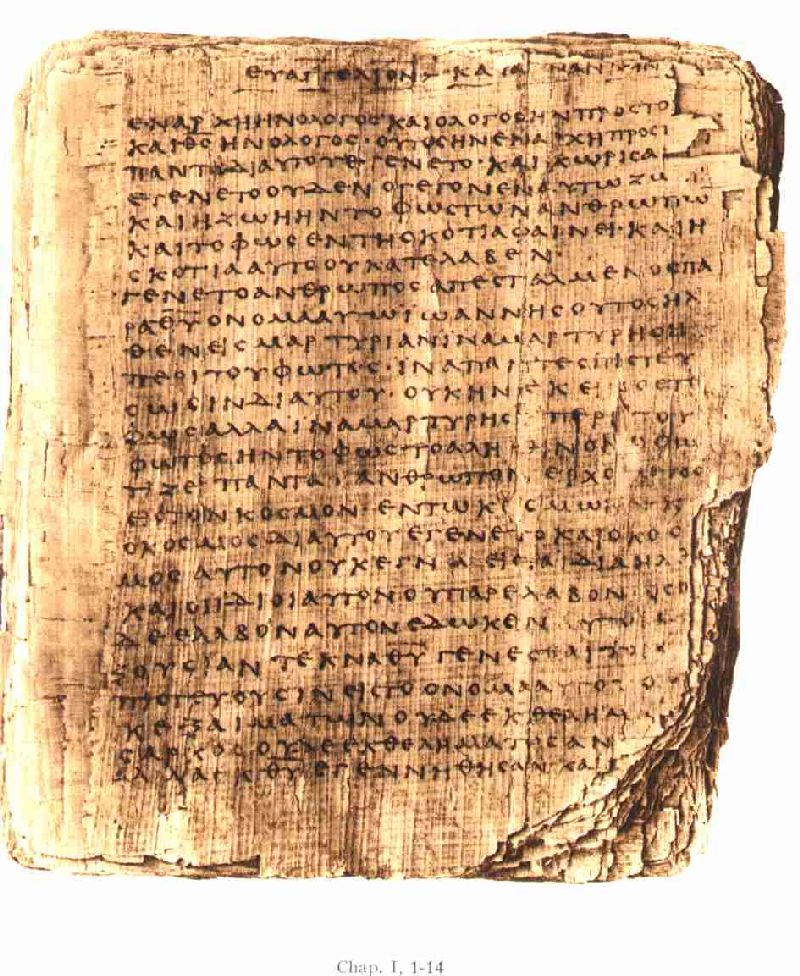 ΕΥΑΓΓΕΛΙΟΝ ΚΑΤΑ ΙΩΑΝΗΝ
ΕΝΑΡΧΗΗΝΟΛΟΓΟΣΚΑΙΟΛΟΓΟΣΗΝΠΡΟΣΤΟ
ΚΑΙΘΣΗΝΟΛΟΓΟΣ·ΟΥΤΟΣΗΝΕΝΑΡΧΗΠΡΟΣ
ΠΑΝΤΑΔΙΑΥΤΟΥΕΓΕΝΕΤΟ·ΚΑΙΧΩΡΙΣΑ
ΕΓΕΝΕΤΟΟΥΔΕΝΟΓΕΓΟΝΕΝΕΝΑΥΤΩΖΩ
ΚΑΙΗΖΩΗΗΝΤΟΦΩΣΤΩΝΑΝΘΡΩΠΩ
ΚΑΙΤΟΦΩΣΕΝΤΗΣΚΟΤΙΑΦΑΙΝΕΙ·ΚΑΙΗ
ΣΚΟΤΙΑΑΥΤΟΟΥΚΑΤΕΛΑΒΕΝ·
ΓΕΝΕΤΟΑΝΘΡΩΠΟΣΑΠΕΣΤΑΛΜΕΝΟΣΠΑ
ΡΑΘΥΟΝΟΜΑΑΥΤΩΙΩΑΝΝΗΣΟΥΤΟΣΗΛ
ΘΕΝΕΙΣΜΑΡΤΥΡΙΑΝΙΝΑΜΑΡΤΥΡΗΣΗ
ΠΕΡΙΤΟΥΦΩΤΟΣ·ΙΝΑΠΑΝΤΕΣΠΙΣΤΕΥ
ΣΩΣΙΝΔΙΑΥΤΟΥ·ΟΥΚΗΝΕΚΕΙΝΟΣΤΟ
ΦΩΣΑΛΛΑΙΝΑΜΑΡΤΥΡΗΣΗ ΠΕΡΙΤΟΥ
ΦΩΤΟΣΗΝΤΟΦΩΣΤΟΑΛΗΘΙΝΟΝΟΦΩ
ΤΙΖΕΙΠΑΝΤΑ ΑΝΘΡΩΠΟΝ ΕΡΧΟΜΕΝΟ
ΕΙΣΤΟΝΚΟΣΜΟΝ·ΕΝΤΩΚΟΣΜΩ
ΟΚΟΣΜΟΣΔΙΑΥΤΟΥΕΓΕΝΕΤΟΚΑΙΟΚΟΣ
ΜΟΣΑΥΤΟΝΟΥΚΕΓΝΩΕΙΣΤΑΙΔΙΑΗΛ
ΚΑΙΟΙΙΔΙΟΙΑΥΤΟΝΟΥΠΑΡΕΛΑΒΟΝ·ΟΣΟΙ
ΔΕΕΛΑΒΟΝΑΥΤΟΝΕΔΩΚΕΝΑΥΤΟΙΣ
ΞΟΥΣΙΑΝΤΕΚΝΑΘΥΓΕΝΕΣΘΑΙΤΟΙΣ
ΠΙΣΤΕΥΟΥΣΙΝΕΙΣΤΟΟΝΟΜΑΑΥΤΟΥ
ΚΕΞΑΙΜΑΤΩΝΟΥΔΕΕΚΘΕΛΗΜΑ
ΣΑΡΚΟΣΟΥΔΕΕΚΘΕΛΗΜΑΤΟΣΑΝ
ΑΛΛΑΕΚΘΥΕΓΕΝΝΗΘΗΣΑΝΚΑΙ
Chap. I, 1-14